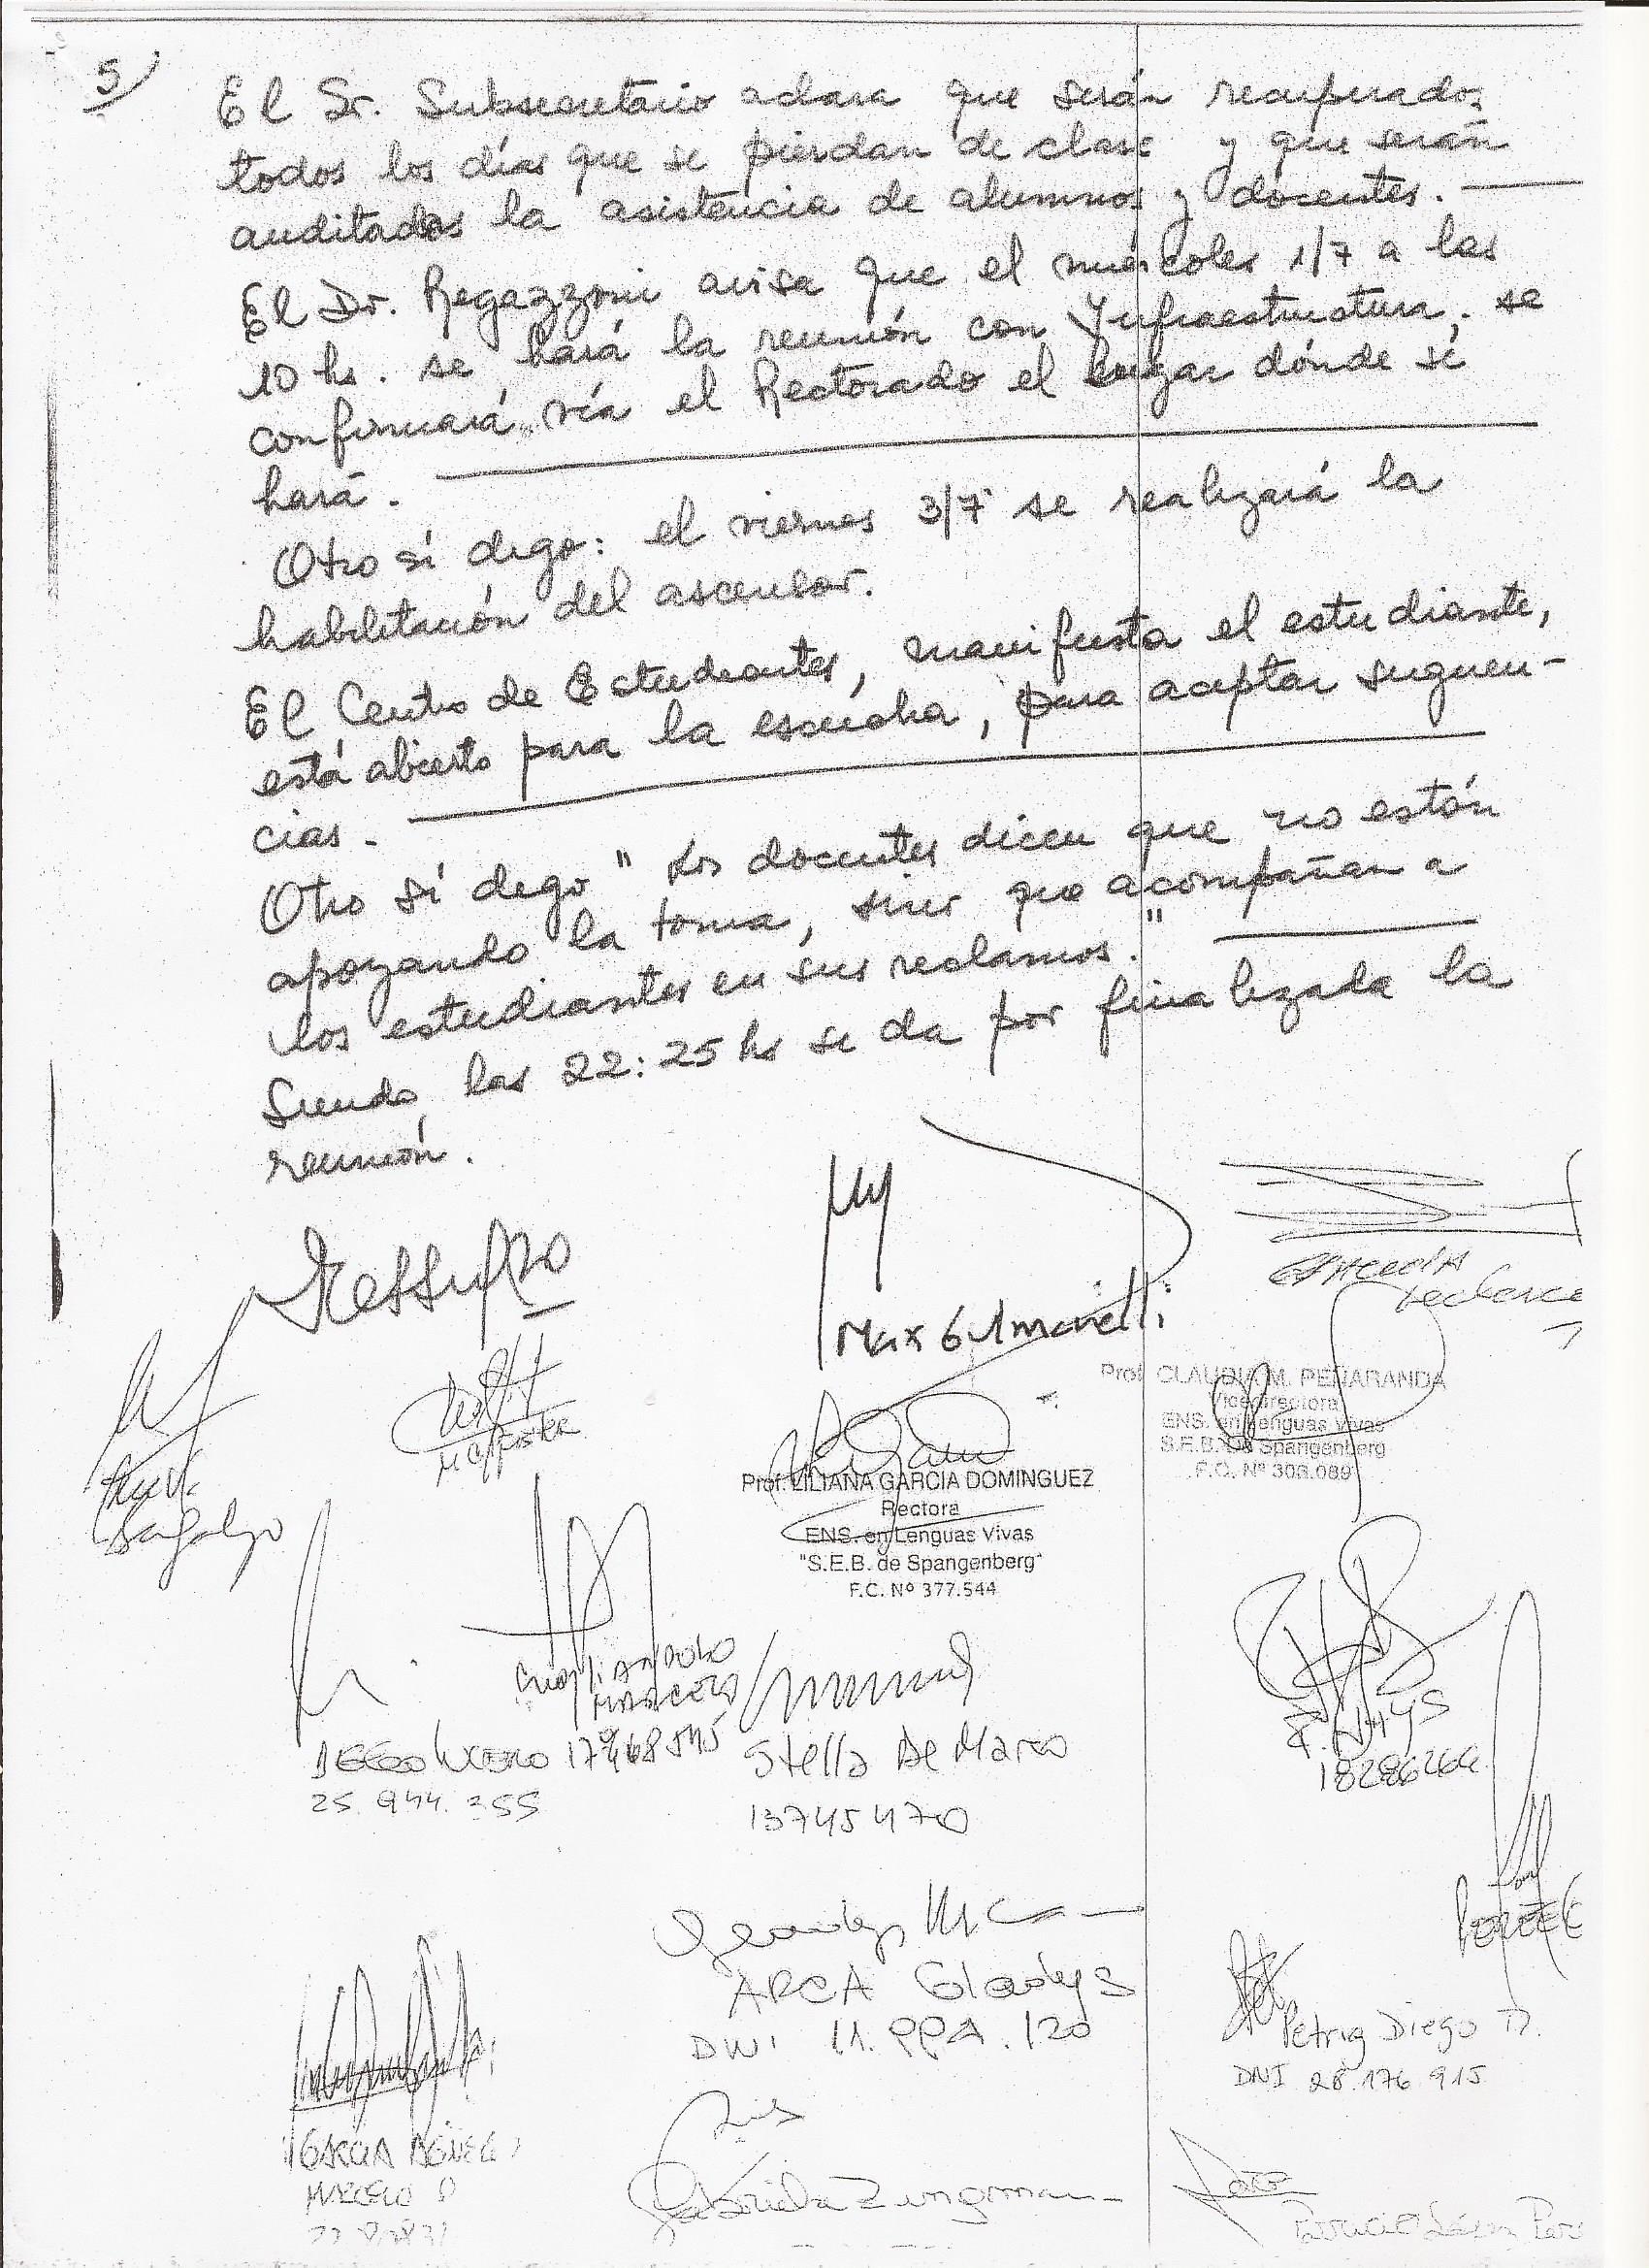 5/
El Sr. Subsecretario aclara que serán recuperados
todos los días que se pierdan de clase y que serán
auditados la asistencia de alumnos y docentes.
El Dr. Regazzoni avisa que el miércoles 1/7 a las
10 hs. se hará la reunión con Infraestructura; se
confirmará vía el Rectorado el lugar dónde se
hará.
Otro sí digo: el viernes 3/7 se realizará la
habilitación del ascensor.
El Centro de Estudiantes, manifiesta el estudiante,
está abierto para la escucha, para aceptar sugeren-
cias.
Otro sí digo " Los docentes dicen que no están
apoyando la toma, sino que acompañan a
los estudiantes en sus reclamos."
Siendo las 22:25 hs se da por finalizada la
reunión.
Max Gulmanelli
Prof. CLAUDIA M. PEÑARANDA
Vicedirectora
ENS. en Lenguas Vivas
S.E.B. de Spangenberg
F.C. Nº 306.089
Prof. LILIANA GARCIA DOMINGUEZ
Rectora
ENS. en Lenguas Vivas
"S.E.B. de Spangenberg"
F.C. Nº 377.544
DIEGO LUCERO
25.944.355
Stella De Marco
13745470
ARCA Gladys
DNI
Petrig Diego D.
DNI 28.176.915
GARCIA
MARCELO D
Gabriela Zungman